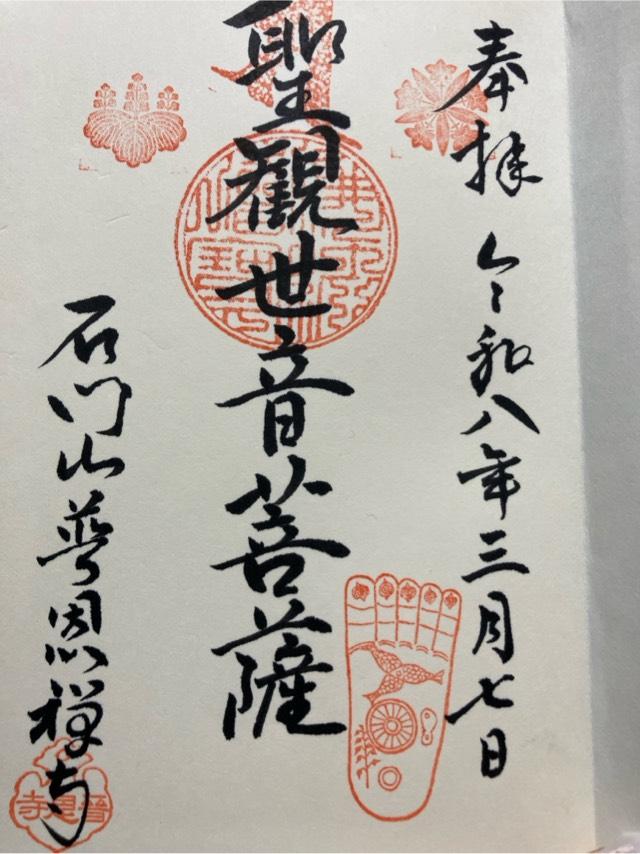 奉拝 令和八年三月七日
聖觀世音菩薩
石門山普恩禅寺
普恩寺